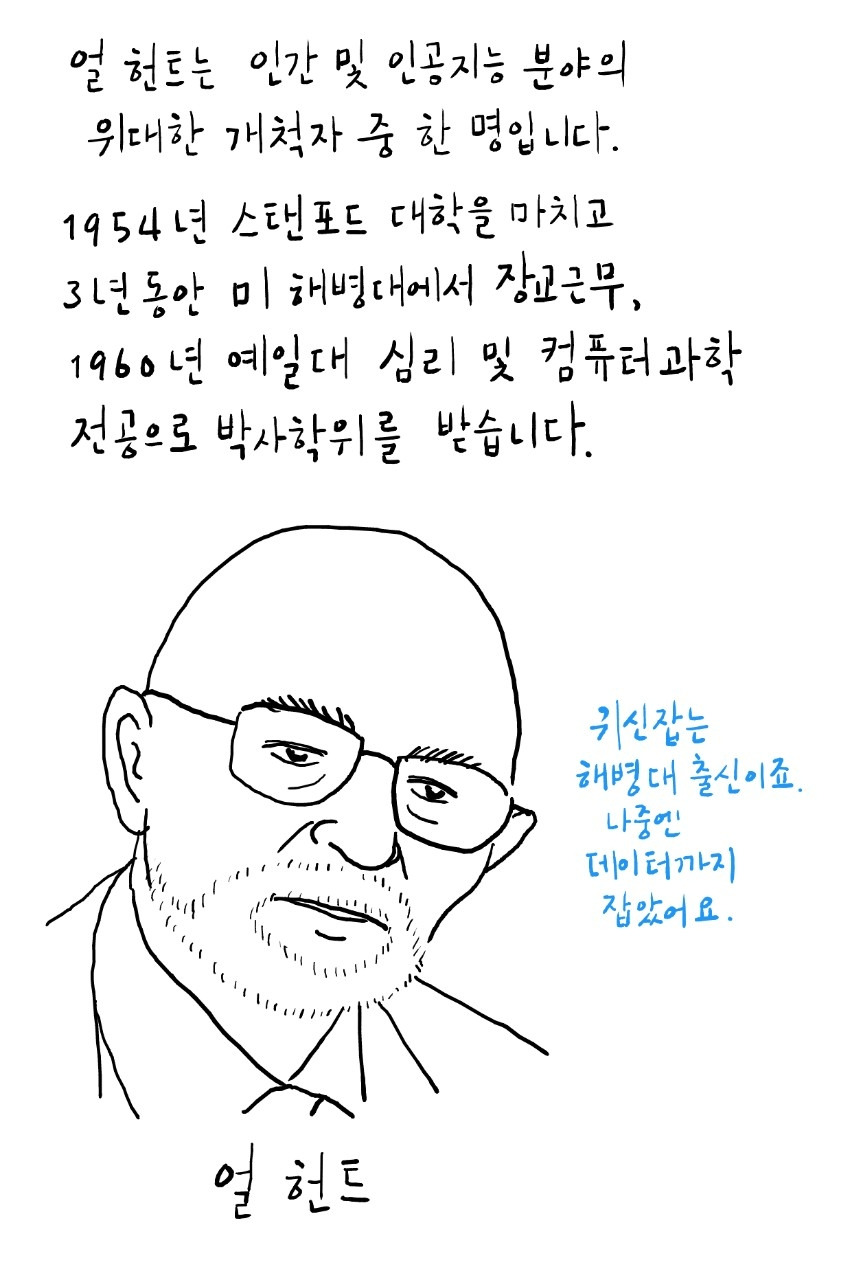 얼 헌트는 인간 및 인공지능 분야의
위대한 개척자 중 한 명입니다.
1954년 스탠포드 대학을 마치고
3년동안 미 해병대에서 장교근무,
1960년 예일대 심리 및 컴퓨터과학
전공으로 박사학위를 받습니다.
귀신잡는
해병대 출신이죠.
나중엔
데이터까지
잡았어요.
얼 헌트